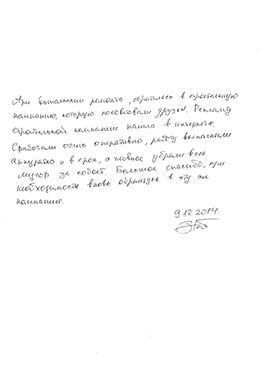 При выполнении ремонта, обратилась в строительную
компанию, которую посоветовали друзья. Рекламу
строительной компании нашла в интернете.
Сработали очень оперативно, работу выполнили
аккуратно и в срок, а главное убрали весь
мусор за собой. Большое спасибо, при
необходимости вновь обращусь в эту же
компанию.
9.12.2014